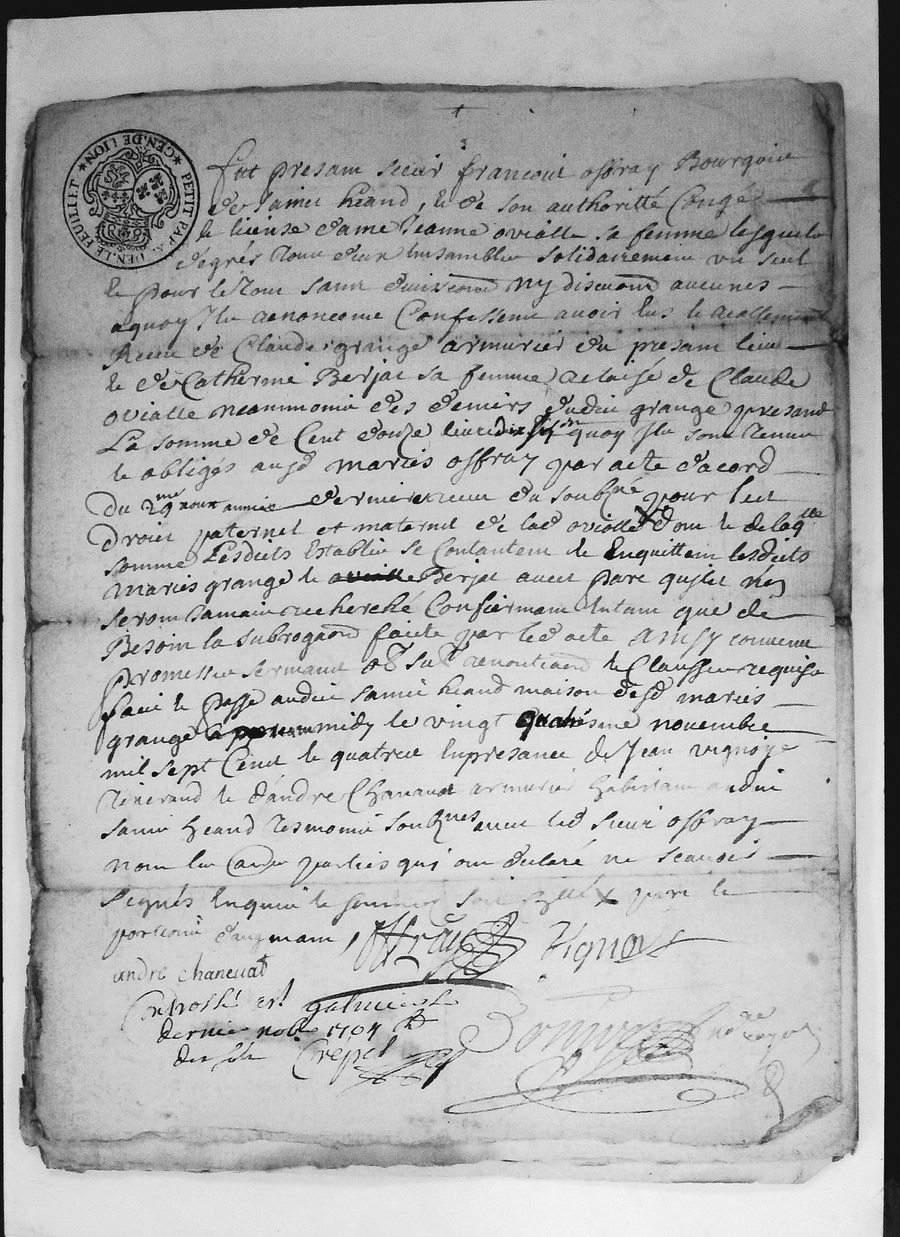 GEN. DE LION * PETIT PAP. A DEN. LE FEUILLET *
fut presant sieur francois offray Bourgois
de saint heand, le de son authoritté Congé
le license dame Jeanne ovialle sa femme lesquels
degrés solidairement un seul
le pour le tout sans division ny discution aucunes
aquoy Ils renoncent Confessent avoir lus le reellement
Receu de Claude grange armurier du presant lieu
le de Catherine Berjat sa femme relaisé de Claude
ovialle neammoins des deniers dudit grange presand
La somme de Cent douze livres quoy Ils sont tenus
le obligés ausd mariés offray par acte d'acord
Du 29me aout année derniere receu du soubné pour les
Droits paternel et maternel de lad ovialle dont le de laqlle
somme Lesdits Establis se Contantent le Enquittent lesdits
mariés grange le Berjat avec pare quilst nen
seront Jamais recherché Confirmant Entant que de
Besoin la subrogaond faite par led acte Ainsy convenu
promesses sermant renontiaond le Clauses requises
fait le passé audit saint heand maison desd mariés
grange midy le vingt quatrieme novembre
mil sept Cent le quatre Enpresance de Jean vignoye
tinerand le d'andré Chanavat armurier habistant audit
saint heand tesmoins soubnés avec led sieur offray
non les autres parties qui ont declaré ne scavoir
signés Enquis le sommés soit scellé x pare le
portant daugmant Offray Vignoy
andre chanevat
Controsllé a st galmier le
dernier nobre 1704
des sols Crepet
notre royal